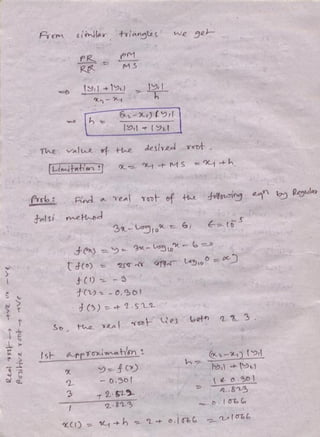 From similar triangles we get
PR/RR = PM/MS
⇒ |y₁| + |y₂| / x₂ - x₁ = |y₁| / h
⇒ h = (x₂ - x₁) |y₁| / |y₁| + |y₂|
The value of the desired root.
Limitation: x = x₁ + MS = x₁ + h
Prob: Find a real root of the following eqn by Regular
falsi method
3x - log₁₀x = 6, ε = 10⁻⁵
f(x) = y = 3x - log₁₀x - 6 = 0
[f(0) = log₁₀0 = ∝]
f(1) = -3
f(2) = -0.301
f(3) = +2.522
So, the real root lies betn 2 & 3.
1st approximation:
x y = f(x)
2 - 0.301
3 + 2.522
1 2.823
h = (x₂ - x₁) |y₁| / |y₁| + |y₂|
= 1 x 0.301 / 2.823
= 0.1066
x(1) = x₁ + h = 2 + 0.1066 = 2.1066
Real root → +ve or -ve
Positive root → +ve